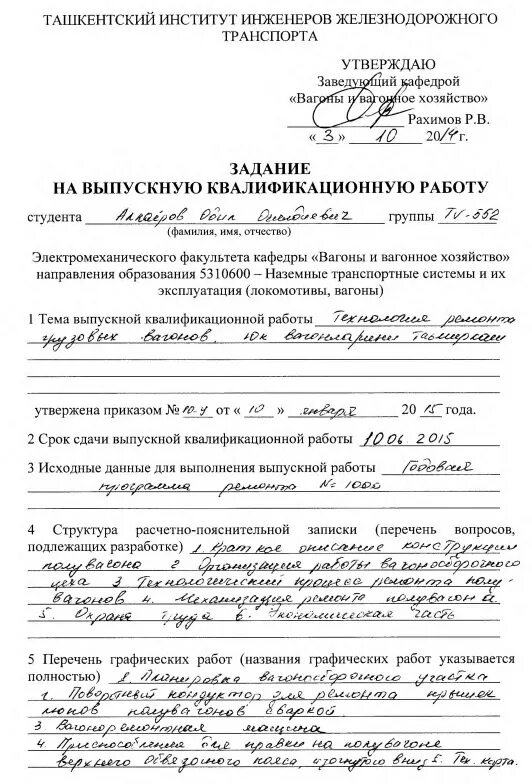 ТАШКЕНТСКИЙ ИНСТИТУТ ИНЖЕНЕРОВ ЖЕЛЕЗНОДОРОЖНОГО
ТРАНСПОРТА
УТВЕРЖДАЮ
Заведующий кафедрой
«Вагоны и вагонное хозяйство»
Рахимов Р.В.
«3» 10 2014г.
ЗАДАНИЕ
НА ВЫПУСКНУЮ КВАЛИФИКАЦИОННУЮ РАБОТУ
студента Одил группы TV-552
(фамилия, имя, отчество)
Электромеханического факультета кафедры «Вагоны и вагонное хозяйство»
направления образования 5310600 – Наземные транспортные системы и их
эксплуатация (локомотивы, вагоны)
1 Тема выпускной квалификационной работы Технология ремонта
грузовых вагонов. Юк вагонларини
утверждена приказом № 10-у от « 10 » января 2015 года.
2 Срок сдачи выпускной квалификационной работы 10.06.2015
3 Исходные данные для выполнения выпускной работы Годовая
программа ремонта N=1000
4 Структура расчетно-пояснительной записки (перечень вопросов,
подлежащих разработке) 1. Краткое описание конструкции
полувагона 2 Организация работы вагоносборочного
цеха 3 Технологический процесс ремонта полу-
вагонов 4. Механизация ремонта полувагона
5. Охрана труда 6. Экономическая часть
5 Перечень графических работ (названия графических работ указывается
полностью) 1. Планировка вагоносборочного участка
2. Поворотный кондуктор для ремонта крышек
люков полувагонов сваркой
3 Вагоноремонтная машина
4. Приспособления для правки на полувагоне
верхнего обвязочного пояса, изогнутого вниз 5. Тех. карта.